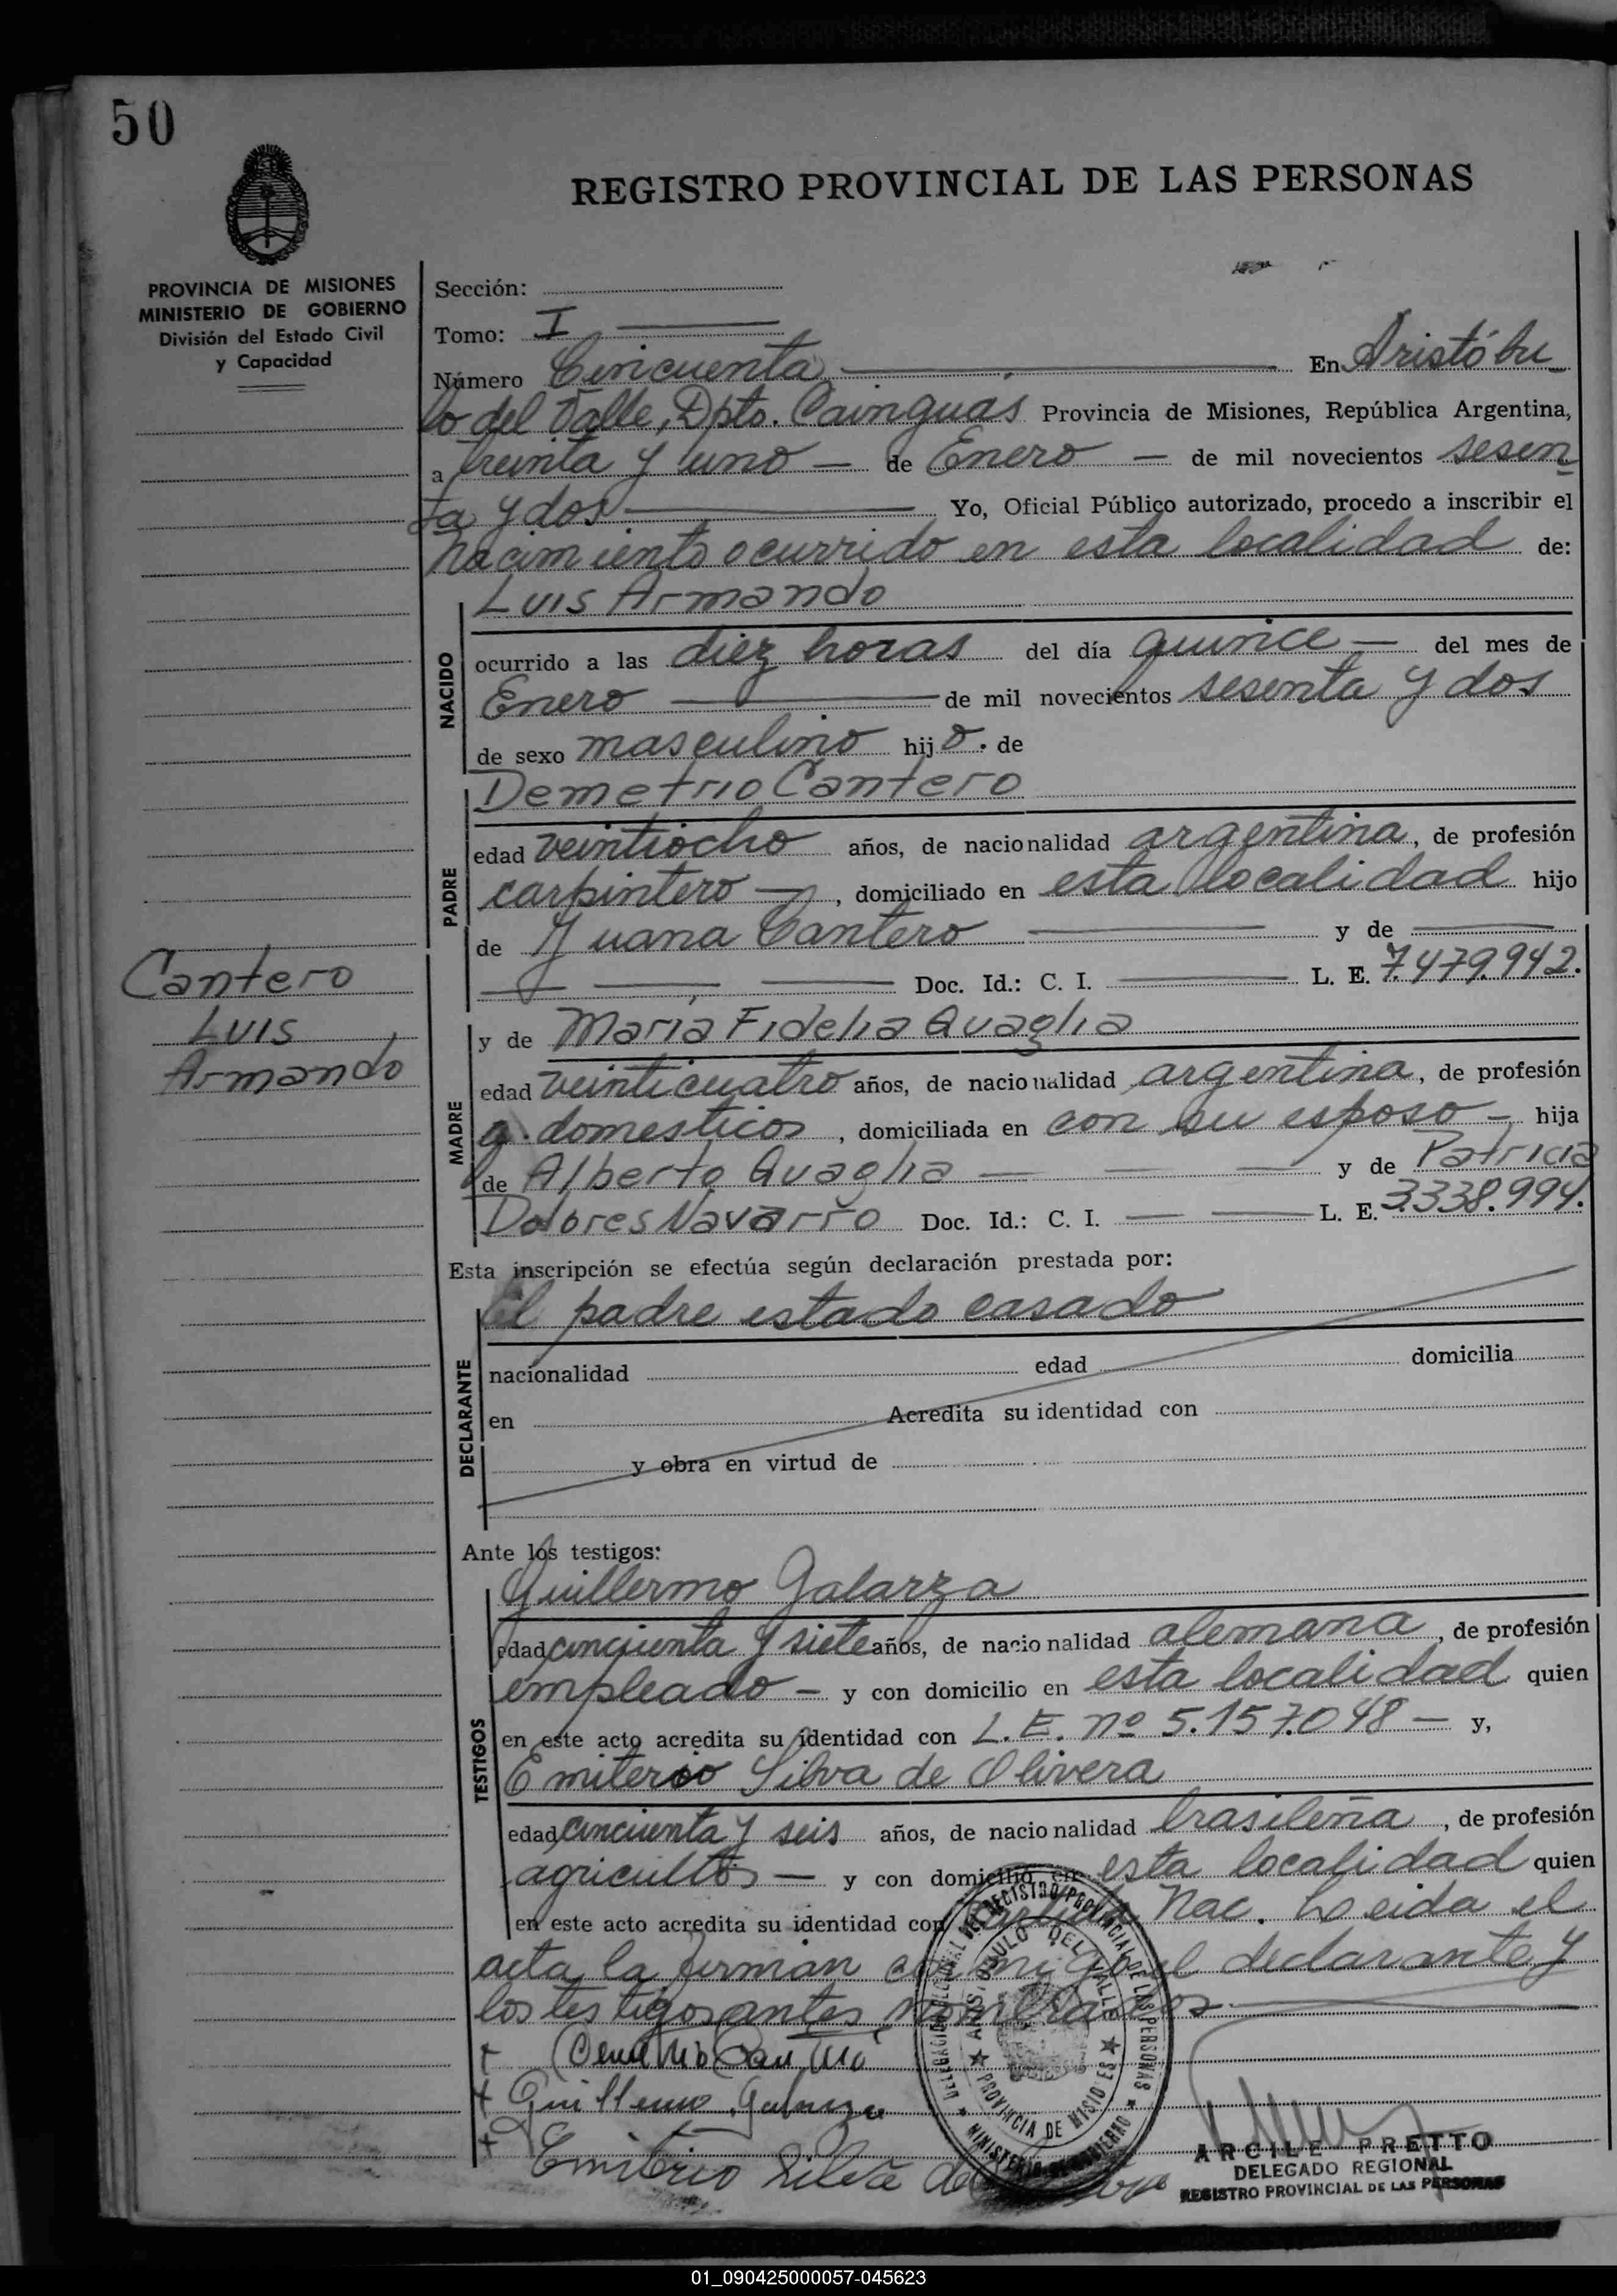 50
REGISTRO PROVINCIAL DE LAS PERSONAS
PROVINCIA DE MISIONES
MINISTERIO DE GOBIERNO
División del Estado Civil
y Capacidad
Sección:
Tomo: I
Número Cincuenta En Aristóbu
lo del Valle, Dpto. Cainguas Provincia de Misiones, República Argentina,
a treinta y uno — de Enero — de mil novecientos sesen
ta y dos Yo, Oficial Público autorizado, procedo a inscribir el
nacimiento ocurrido en esta localidad de:
NACIDO
Luis Armando
ocurrido a las diez horas del día quince — del mes de
Enero — de mil novecientos sesenta y dos
de sexo masculino hijo. de
PADRE
Demetrio Cantero
edad veintiocho años, de nacionalidad argentina, de profesión
carpintero —, domiciliado en esta localidad hijo
de Juana Cantero — y de —
Doc. Id.: C. I. — L. E. 7.479.942.
Cantero
Luis
Armando
MADRE
y de María Fidelia Quaglia
edad veinticuatro años, de nacionalidad argentina, de profesión
q. domesticos, domiciliada en con su esposo — hija
de Alberto Quaglia — y de Patricia
Dolores Navarro Doc. Id.: C. I. — L. E. 3.338.994.
Esta inscripción se efectúa según declaración prestada por:
DECLARANTE
El padre estado casado
nacionalidad edad domicilia
en Acredita su identidad con
y obra en virtud de
Ante los testigos:
TESTIGOS
Guillermo Galarza
edad cincuenta y siete años, de nacionalidad alemana, de profesión
empleado — y con domicilio en esta localidad quien
en este acto acredita su identidad con L. E. nº 5.157.048 — y,
Emiterio Silva de Olivera
edad cincuenta y seis años, de nacionalidad brasileña, de profesión
agricultor — y con domicilio en esta localidad quien
en este acto acredita su identidad con Nac. Leida el
acta la firman conmigo el declarante y
los testigos antes nombrados
Guillermo Galarza
Emiterio Silva de
DEL REGISTRO PROVINCIAL DE LAS PERSONAS
ARISTOBULO DEL VALLE
PROVINCIA DE MISIONES
MINISTERIO DE GOBIERNO
ARCILE PRETTO
DELEGADO REGIONAL
REGISTRO PROVINCIAL DE LAS PERSONAS
01_090425000057-045623